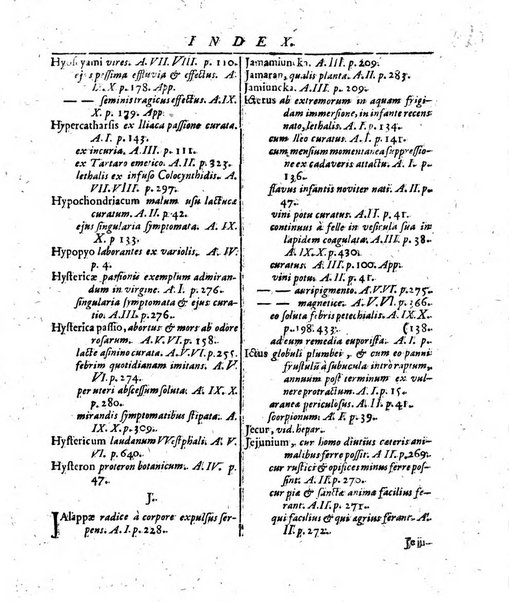 INDEX.
Hyosciami vires. A. VII. VIII. p. 110.
ejus pessima effluvia & effectus. A.
IX. X. p. 178. App.
— — seminis tragicus effectus. A. IX.
X. p. 179. App.
Hypercatharsis ex Iliaca passione curata.
A. I. p. 143.
ex incuria. A. III. p. 111.
ex Tartaro emetico. A. II. p. 323.
lethalis ex infuso Colocynthidis. A.
VII. VIII. p. 297.
Hypochondriacum malum usu lactucæ
curatum. A. II. p. 42.
ejus singularia symptomata. A. IX.
X. p 133.
Hypopyo laborantes ex variolis. A. IV.
p. 4.
Hystericæ passionis exemplum admiran-
dum in virgine. A. I. p. 276.
singularia symptomata & ejus cura-
tio. A. III. p. 276.
Hysterica passio, abortus & mors ab odore
rosarum. A. V. VI. p. 158.
lacte asinino curata. A. V. VI. p. 255.
febrim quotidianam imitans. A. V.
VI. p. 274.
per uteri abscessum soluta. A. IX. X.
p. 280.
mirandis symptomatibus stipata. A.
IX. X. p. 309.
Hystericum laudanum VVestphali. A. V.
VI. p. 640.
Hysteron proteron botanicum. A. IV. p.
47.
J.
JAlappæ radice à corpore expulsus ser-
pens. A. I. p. 228.
Jamamiuncka. A. III. p. 209.
Jamaran, qualis planta. A. II. p. 283.
Jamiuncka. A. III. p. 209.
Icterus ab extremorum in aquam frigi-
dam immersione, in infante recens
nato, lethalis. A. I. p. 134.
cum Ileo curatus. A. I. p. 141.
cum mensium momentanea suppressio-
ne ex cadaveris attactu. A. I. p.
136.
flavus infantis noviter nati. A. II. p.
47.
vini potu curatus. A. II. p. 41.
continuus à felle in vesicula sua in
lapidem coagulato. A. III. p. 38.
A. IX. X. p. 430.
curatus. A. III. p. 100. App.
vini potu. A. II. p. 41.
— — auripigmento. A. V. VI. p. 275.
— — magnetice. A. V. VI. p. 366.
eo soluta febris petechialis. A. IX. X.
p. 198. 433. (138.
ad eum remedia euporista. A. I. p.
Ictus globuli plumbei, & cum eo panni
frustulū à subucula intrò raptum,
annuum post terminum ex vul-
nere protractum. A. I. p. 15.
aranea periculosus. A. II. p. 41.
scorpionum. A. I. p. 39.
Jecur, vid. hepar.
Jejunium, cur homo diutius cæteris ani-
malibus ferre possit. A. II. p. 269.
cur rustici & opifices minus ferre pos-
sint. A. II. p. 270.
cur pia & sancta anima facilius fe-
rant. A. II. p. 271.
qui facilius & qui agrius ferant. A.
II. p. 272.
Jeju-